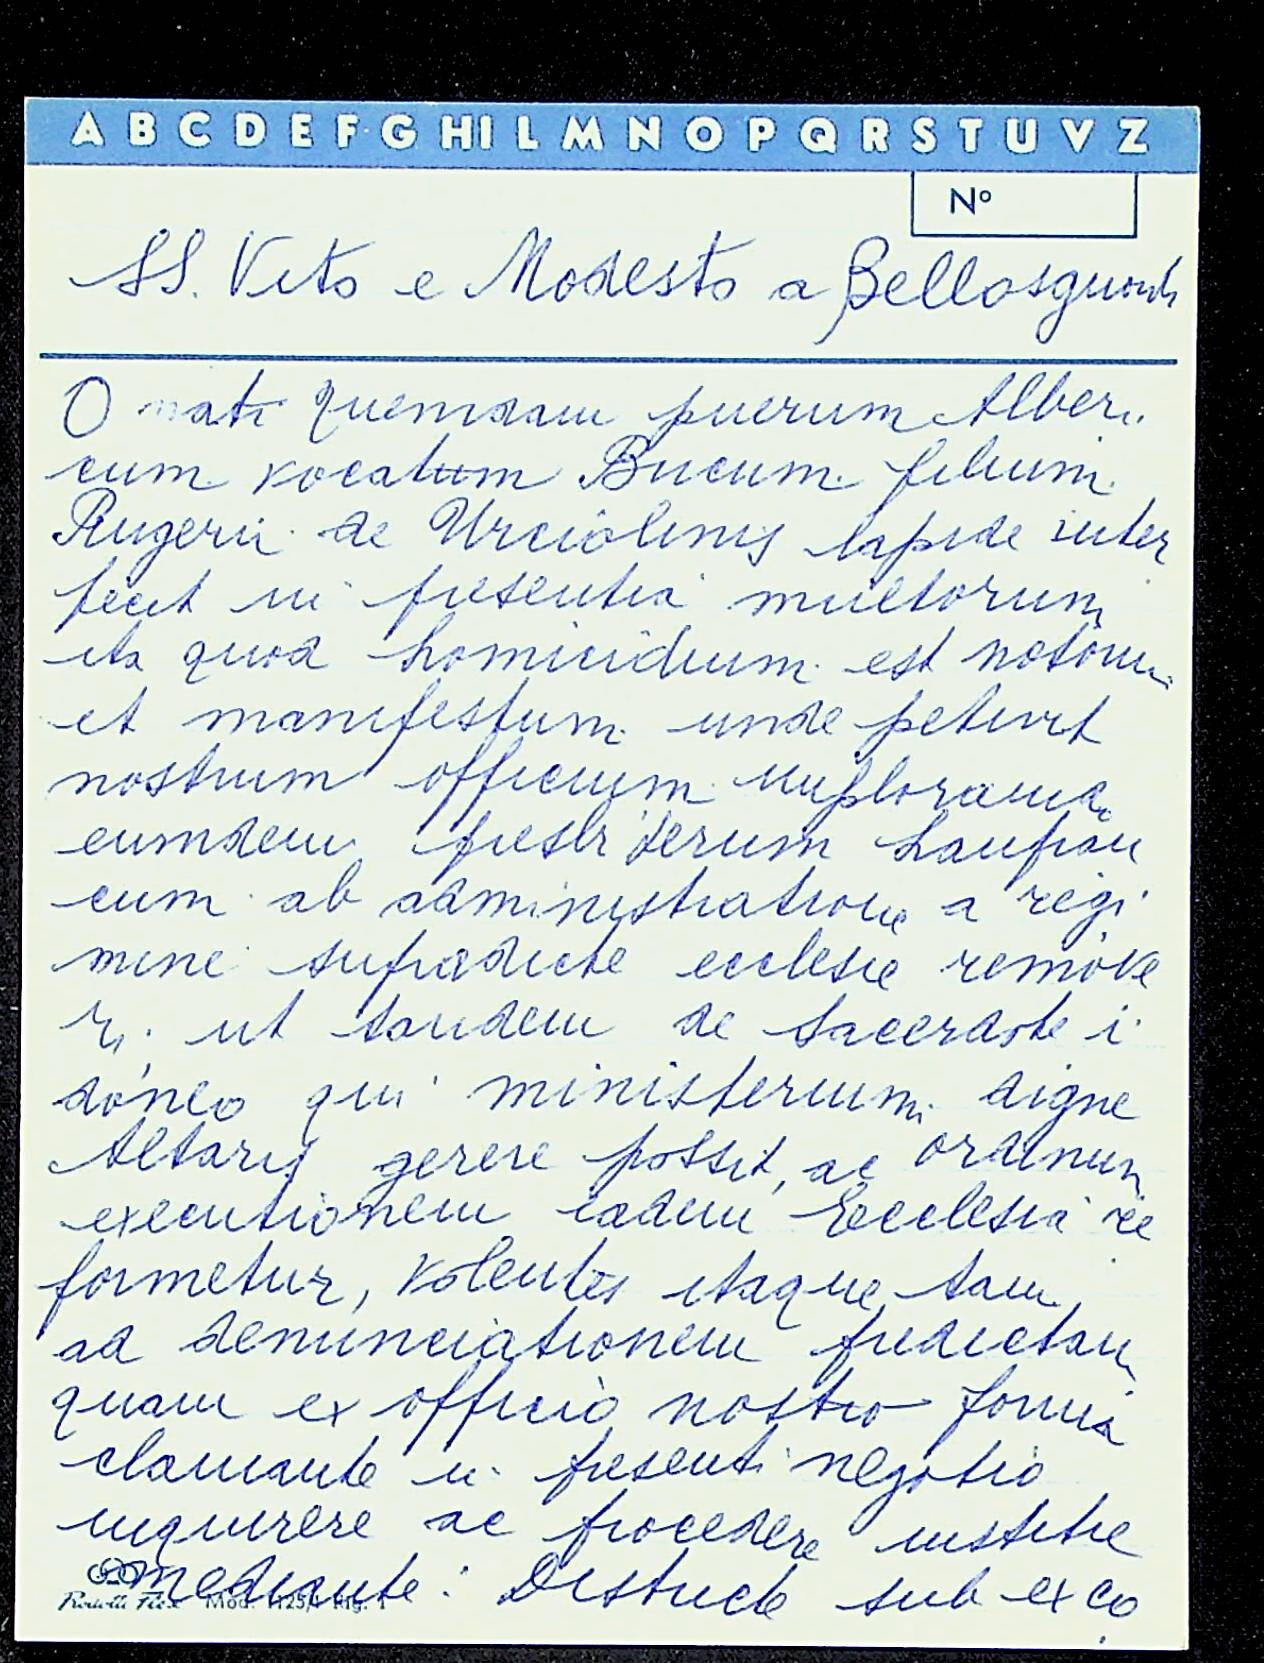 A B C D E F G H I L M N O P Q R S T U V Z
N°
SS. Vito e Modesto a Bellosguardo
O nati quemdam puerum Alberi
cum vocatum Bucum filium
Rugerii de Urciolinis lapide inter
fecit in presentia multorum
ita quod homicidium est notorium
et manifestum unde petivit
nostrum officium implorando
eumdem presbiterum Lanfran
cum ab administratione a regi
mine supradicte ecclesie remove
ri, ut tandem de sacerdote i
doneo qui ministerium digne
Altaris gerere possit, ac ordinum
executionem eadem Ecclesia re
formetur, volentes itaque tam
ad denunciationem predictam
quam ex officio nostro fama
clamante in presenti negotio
inquirere ac procedere iustitie
mediante: Districte sub exco
Mod. 1125/1 Rig. 1